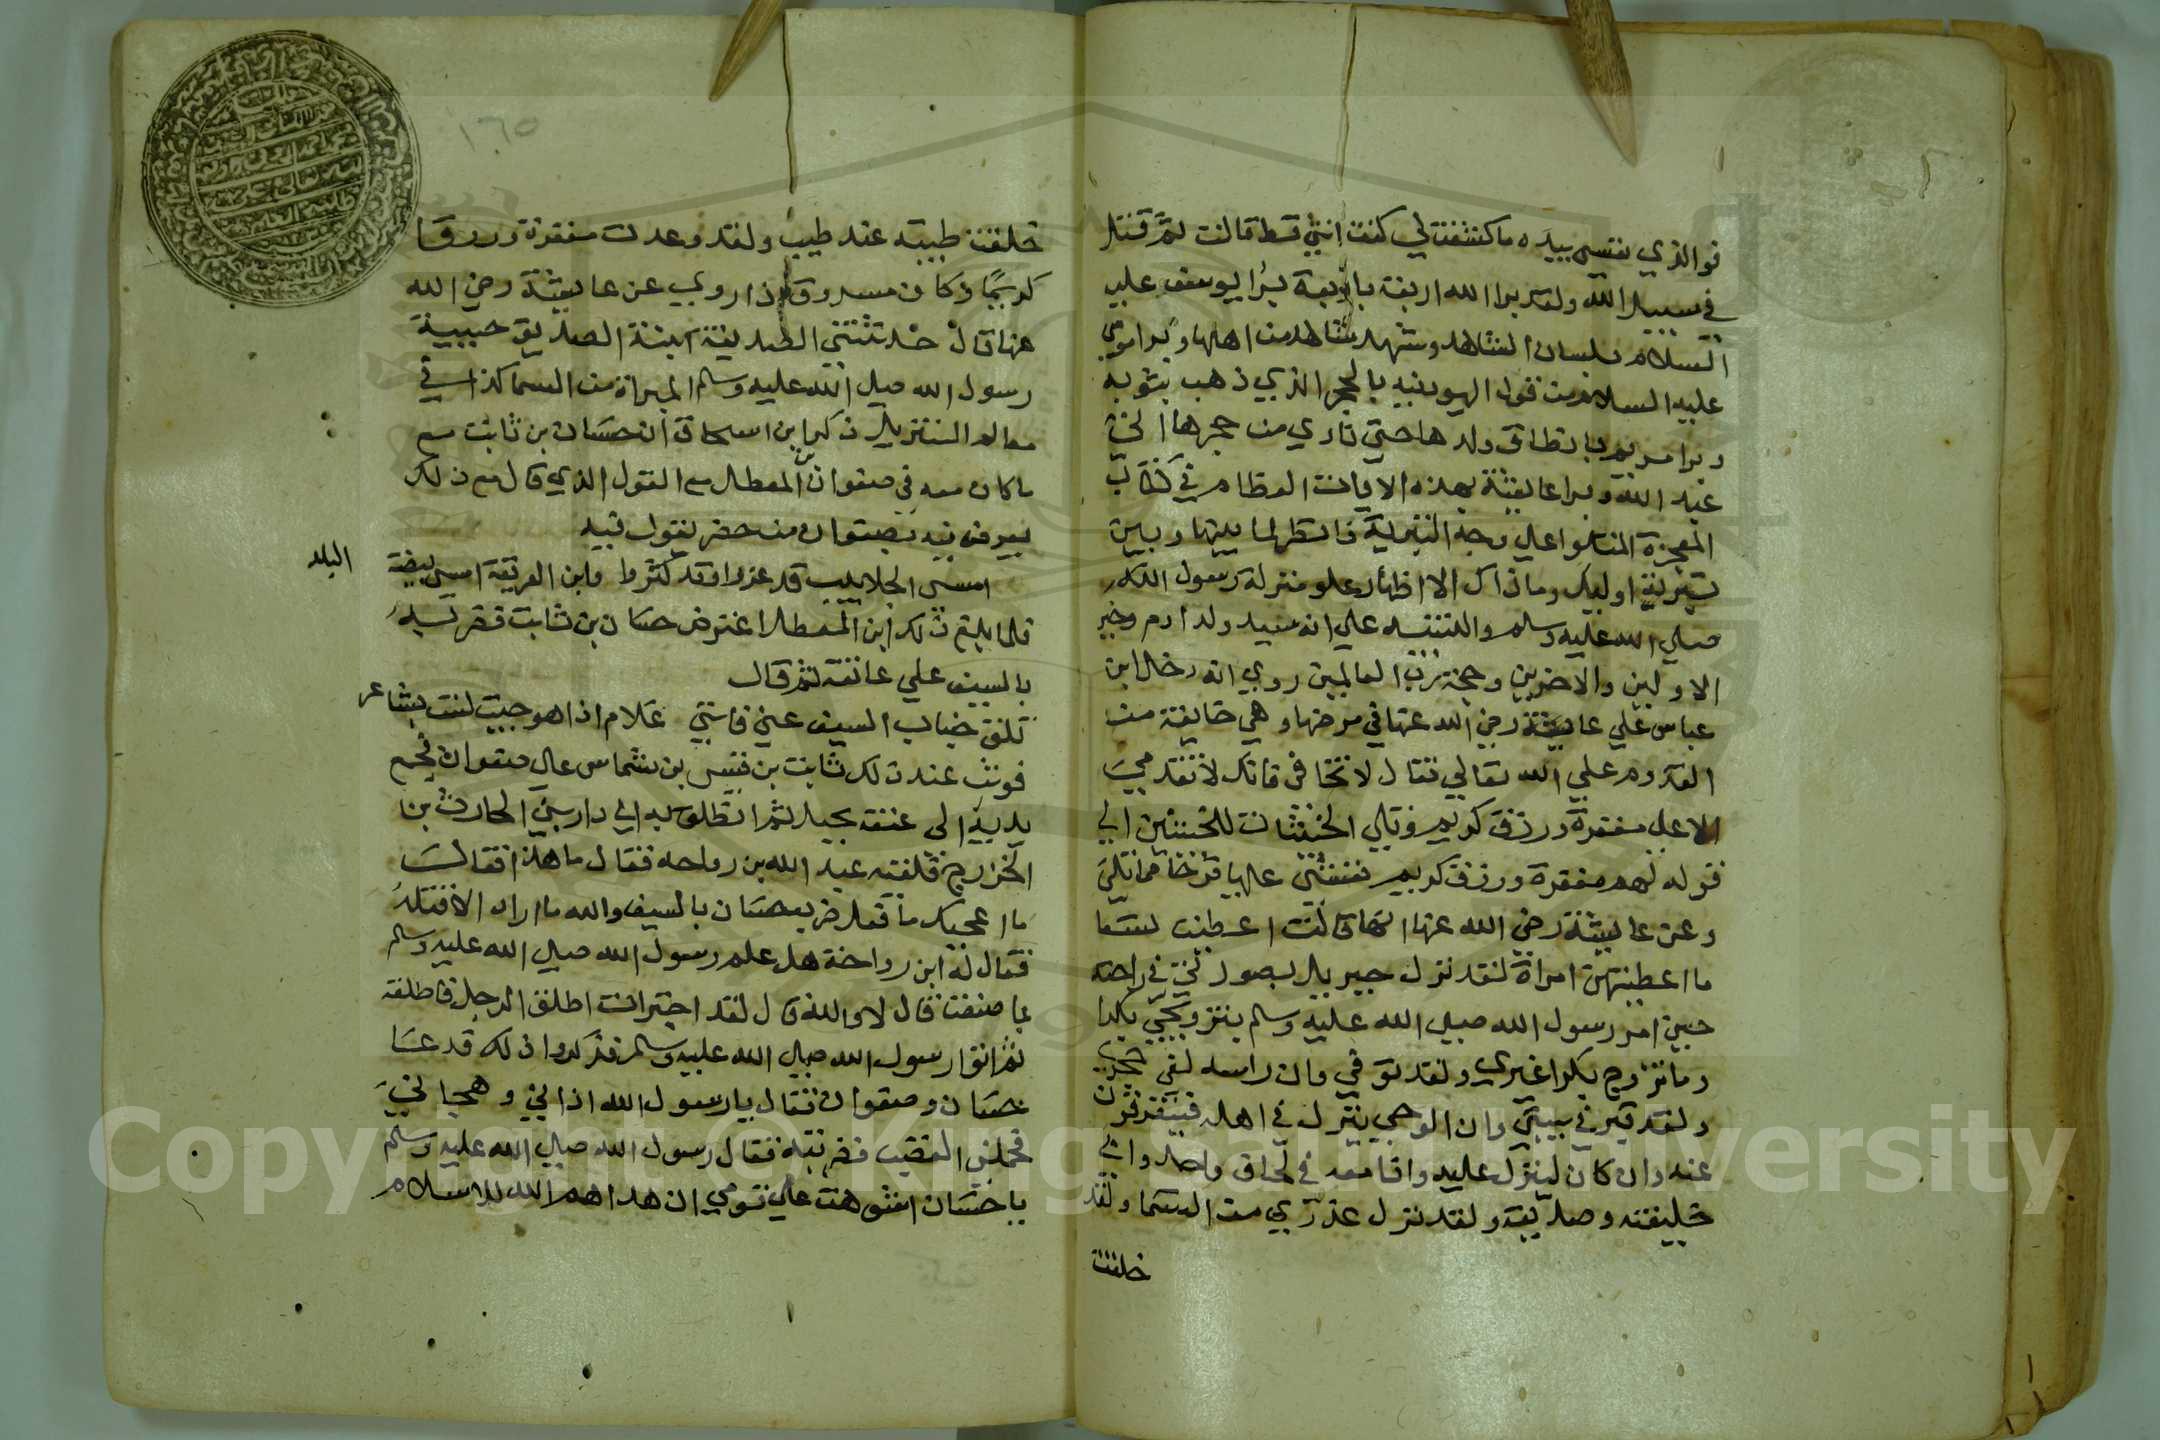 فو الذي نفسي بيده ما كشفت لي كنف انثي قط قالت ثم قتل
في سبيل الله ولقد برا الله اربعة باربعة برا يوسف عليه
السلام بلسان الشاهد وشهد شاهد من اهلها وبرا موسي
عليه السلام من قول اليهود فيه بالحجر الذي ذهب بثوبه
وبرا مريم بانطاق ولدها حتي نادي من حجرها اني
عبد الله وبرا عايشة بهذه الايات العظام في كتاب
المعجزة المتلوا علي وجه التبرية فانظر لما بينها وبين
تبرية اوليك وما ذاك الا اظهار علو منزلة رسول الله
صلي الله عليه وسلم والتنبيه علي انه سيد ولد ادم وخير
الاولين والاخرين وحجة رب العالمين روي انه دخل ابن
عباس علي عايشة رضي الله عنها في مرضها وهي خايفة من
القدوم علي الله تعالي فقال لا تخافي فانك لا تقدمي
الا علي مغفرة ورزق كريم وتلي الخبيثات للخبيثين الي
قوله لهم مغفرة ورزق كريم فغشي عليها فرحا مما تلي
وعن عايشة رضي الله عنها انها قالت اعطيت تسعا
ما اعطيتهن امراة لقد نزل جبريل بصورتي في راحته
حين امر رسول الله صلي الله عليه وسلم يتزوجني بكرا
وما تزوج بكرا غيري ولقد توفي وان راسه لفي حجري
ولقد قبر في بيتي وان الوحي ينزل في اهله فيتفرقون
عنه وان كان لينزل عليه وانا معه في لحاف واحد واني
خليفته وصديقه ولقد نزل عذري من السما ولقد
خلقت
١٦٥
خلقت طيبة عند طيب ولقد وعدت مغفرة ورزقا
كريما وكان مسروق اذا روي عن عايشة رضي الله
عنها قال حدثتني الصديقة ابنة الصديق حبيبة
رسول الله صلي الله عليه وسلم المبراة من السما كذا في
معالم التنزيل ذكر ابن اسحاق ان حسان بن ثابت مع
ما كان منه في صفوان بن المعطل مع القول الذي قال مع ذلك
يعرض فيه بصفوان من حضر بقول فيه
امسي الجلابيب قد عزوا وقد كثروا وابن الفريعة امسي بيضة البلد
فلما بلغ ذلك ابن المعطل اعترض حسان بن ثابت فضربه
بالسيف علي عاتقه ثم قال
تلق ذباب السيف عني فانني غلام اذا هوجيت لست بشاعر
فوثب عند ذلك ثابت بن قيس بن شماس علي صفوان فجمع
يديه الي عنقه بحبل ثم انطلق به الي دار بني الحارث بن
الخزرج فلقيه عبد الله بن رواحه فقال ما هذا فقال
ما اعجبك ما فعل ضرب حسان بالسيف والله ما اراه الا قتله
فقال له ابن رواحة هل علم رسول الله صلي الله عليه وسلم
بما صنعت قال لا والله قال لقد اجترات اطلق الرجل فاطلقه
ثم اتوا رسول الله صلي الله عليه وسلم فذكروا ذلك فدعا
حسان وصفوان فقال يا رسول الله اذاني وهجاني
فحملني الغضب فضربته فقال رسول الله صلي الله عليه وسلم
يا حسان اتشوهت علي قومي ان هداهم الله للاسلام
Copyright © King Saud University